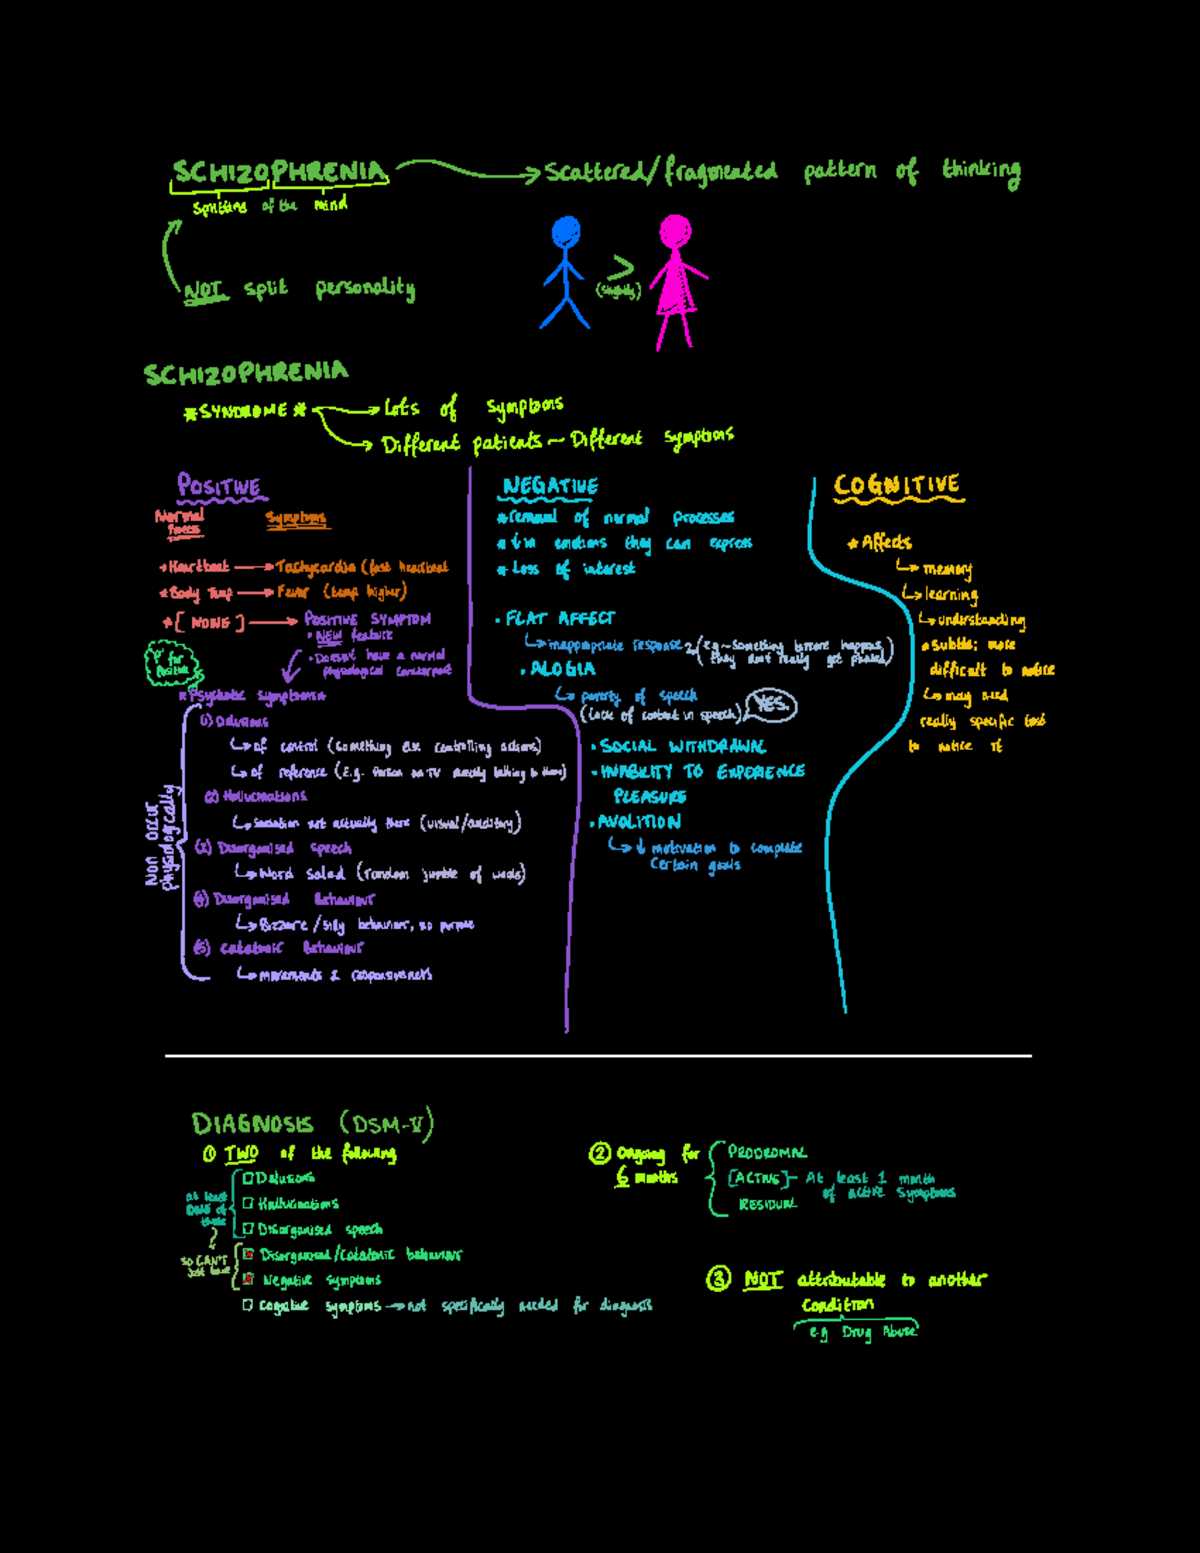 SCHIZOPHRENIA → Scattered/fragmented pattern of thinking
Splitting of the mind
NOT split personality
>
(slightly)
SCHIZOPHRENIA
*SYNDROME* → Lots of symptoms
→ Different patients – Different symptoms
POSITIVE
Normal
Symptoms
* Heartbeat → Tachycardia (fast heartbeat
* Body Temp → Fever (temp higher)
* [NONE] → POSITIVE SYMPTOM
• NEW feature
• Doesn't have a normal
physiological counterpart
"P" for
Positive
* Psychotic symptoms
Non occur
physiologically
(1) Delusions
↳ of control (something else controlling actions)
↳ of reference (E.g. Person on TV directly talking to them)
(2) Hallucinations
↳ Sensation not actually there (visual/auditory)
Disorganised speech
↳ Word salad (random jumble of words)
(4) Disorganised Behaviour
↳ Bizzare/silly behaviour, no purpose
(5) Catatonic Behaviour
↳ Movements & responsiveness
NEGATIVE
* removal of normal processes
* ↓ in emotions they can express
* Loss of interest
• FLAT AFFECT
↳ inappropriate response (e.g ~ Something happens,
they don't really get phased)
• ALOGIA
↳ poverty of speech
(Lack of content in speech) YES.
• SOCIAL WITHDRAWAL
• INABILITY TO EXPERIENCE
PLEASURE
• AVOLITION
↳ ↓ motivation to complete
certain goals
COGNITIVE
* Affects
↳ memory
↳ learning
↳ understanding
* subtle: more
difficult to notice
↳ may need
really specific test
to notice it
DIAGNOSIS (DSM-V)
① TWO of the following
at least
one of
these
☐ Delusions
☐ Hallucinations
☐ Disorganised speech
SO CAN'T
just have
☒ Disorganised/Catatonic behaviour
☒ Negative symptoms
☐ Cognitive symptoms → not specifically needed for diagnosis
② Ongoing for
6 months
PRODROMAL
[ACTIVE] – At least 1 month
of active symptoms
RESIDUAL
③ NOT attributable to another
condition
e.g Drug Abuse